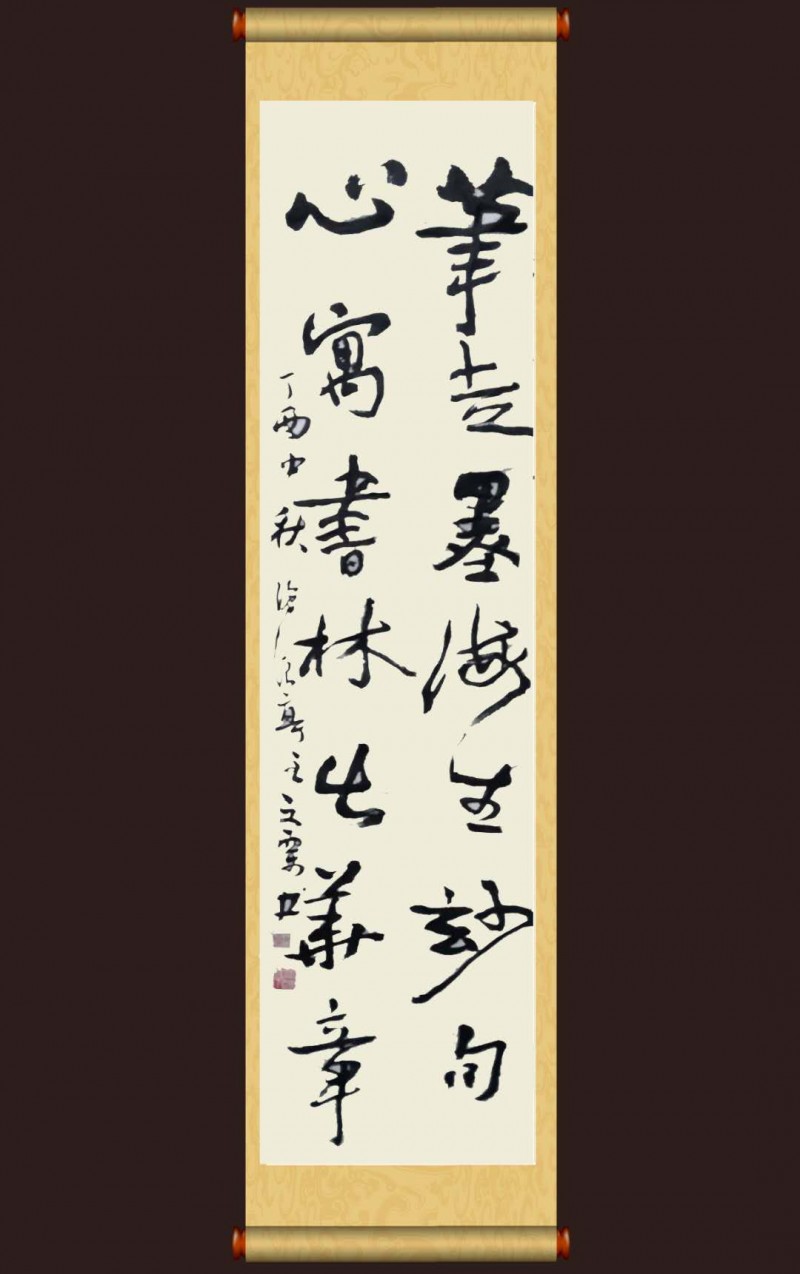 筆走墨海生妙句
心寓書林出華章
丁酉中秋
亭主文
書